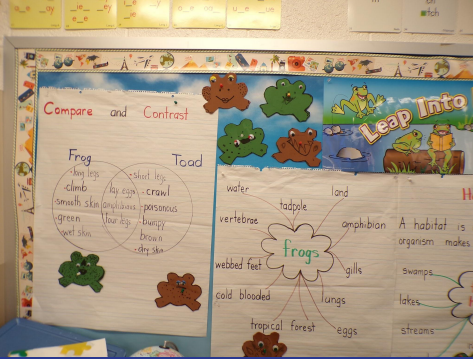 Compare and Contrast
Frog
Toad
long legs
climb
smooth skin
green
wet skin
lay eggs
amphibians
four legs
short legs
crawl
poisonous
bumpy
brown
dry skin
Leap Into
water
land
tadpole
vertebrae
amphibian
frogs
webbed feet
gills
cold blooded
lungs
tropical forest
eggs
A habitat is
organism makes
swamps
lakes
streams